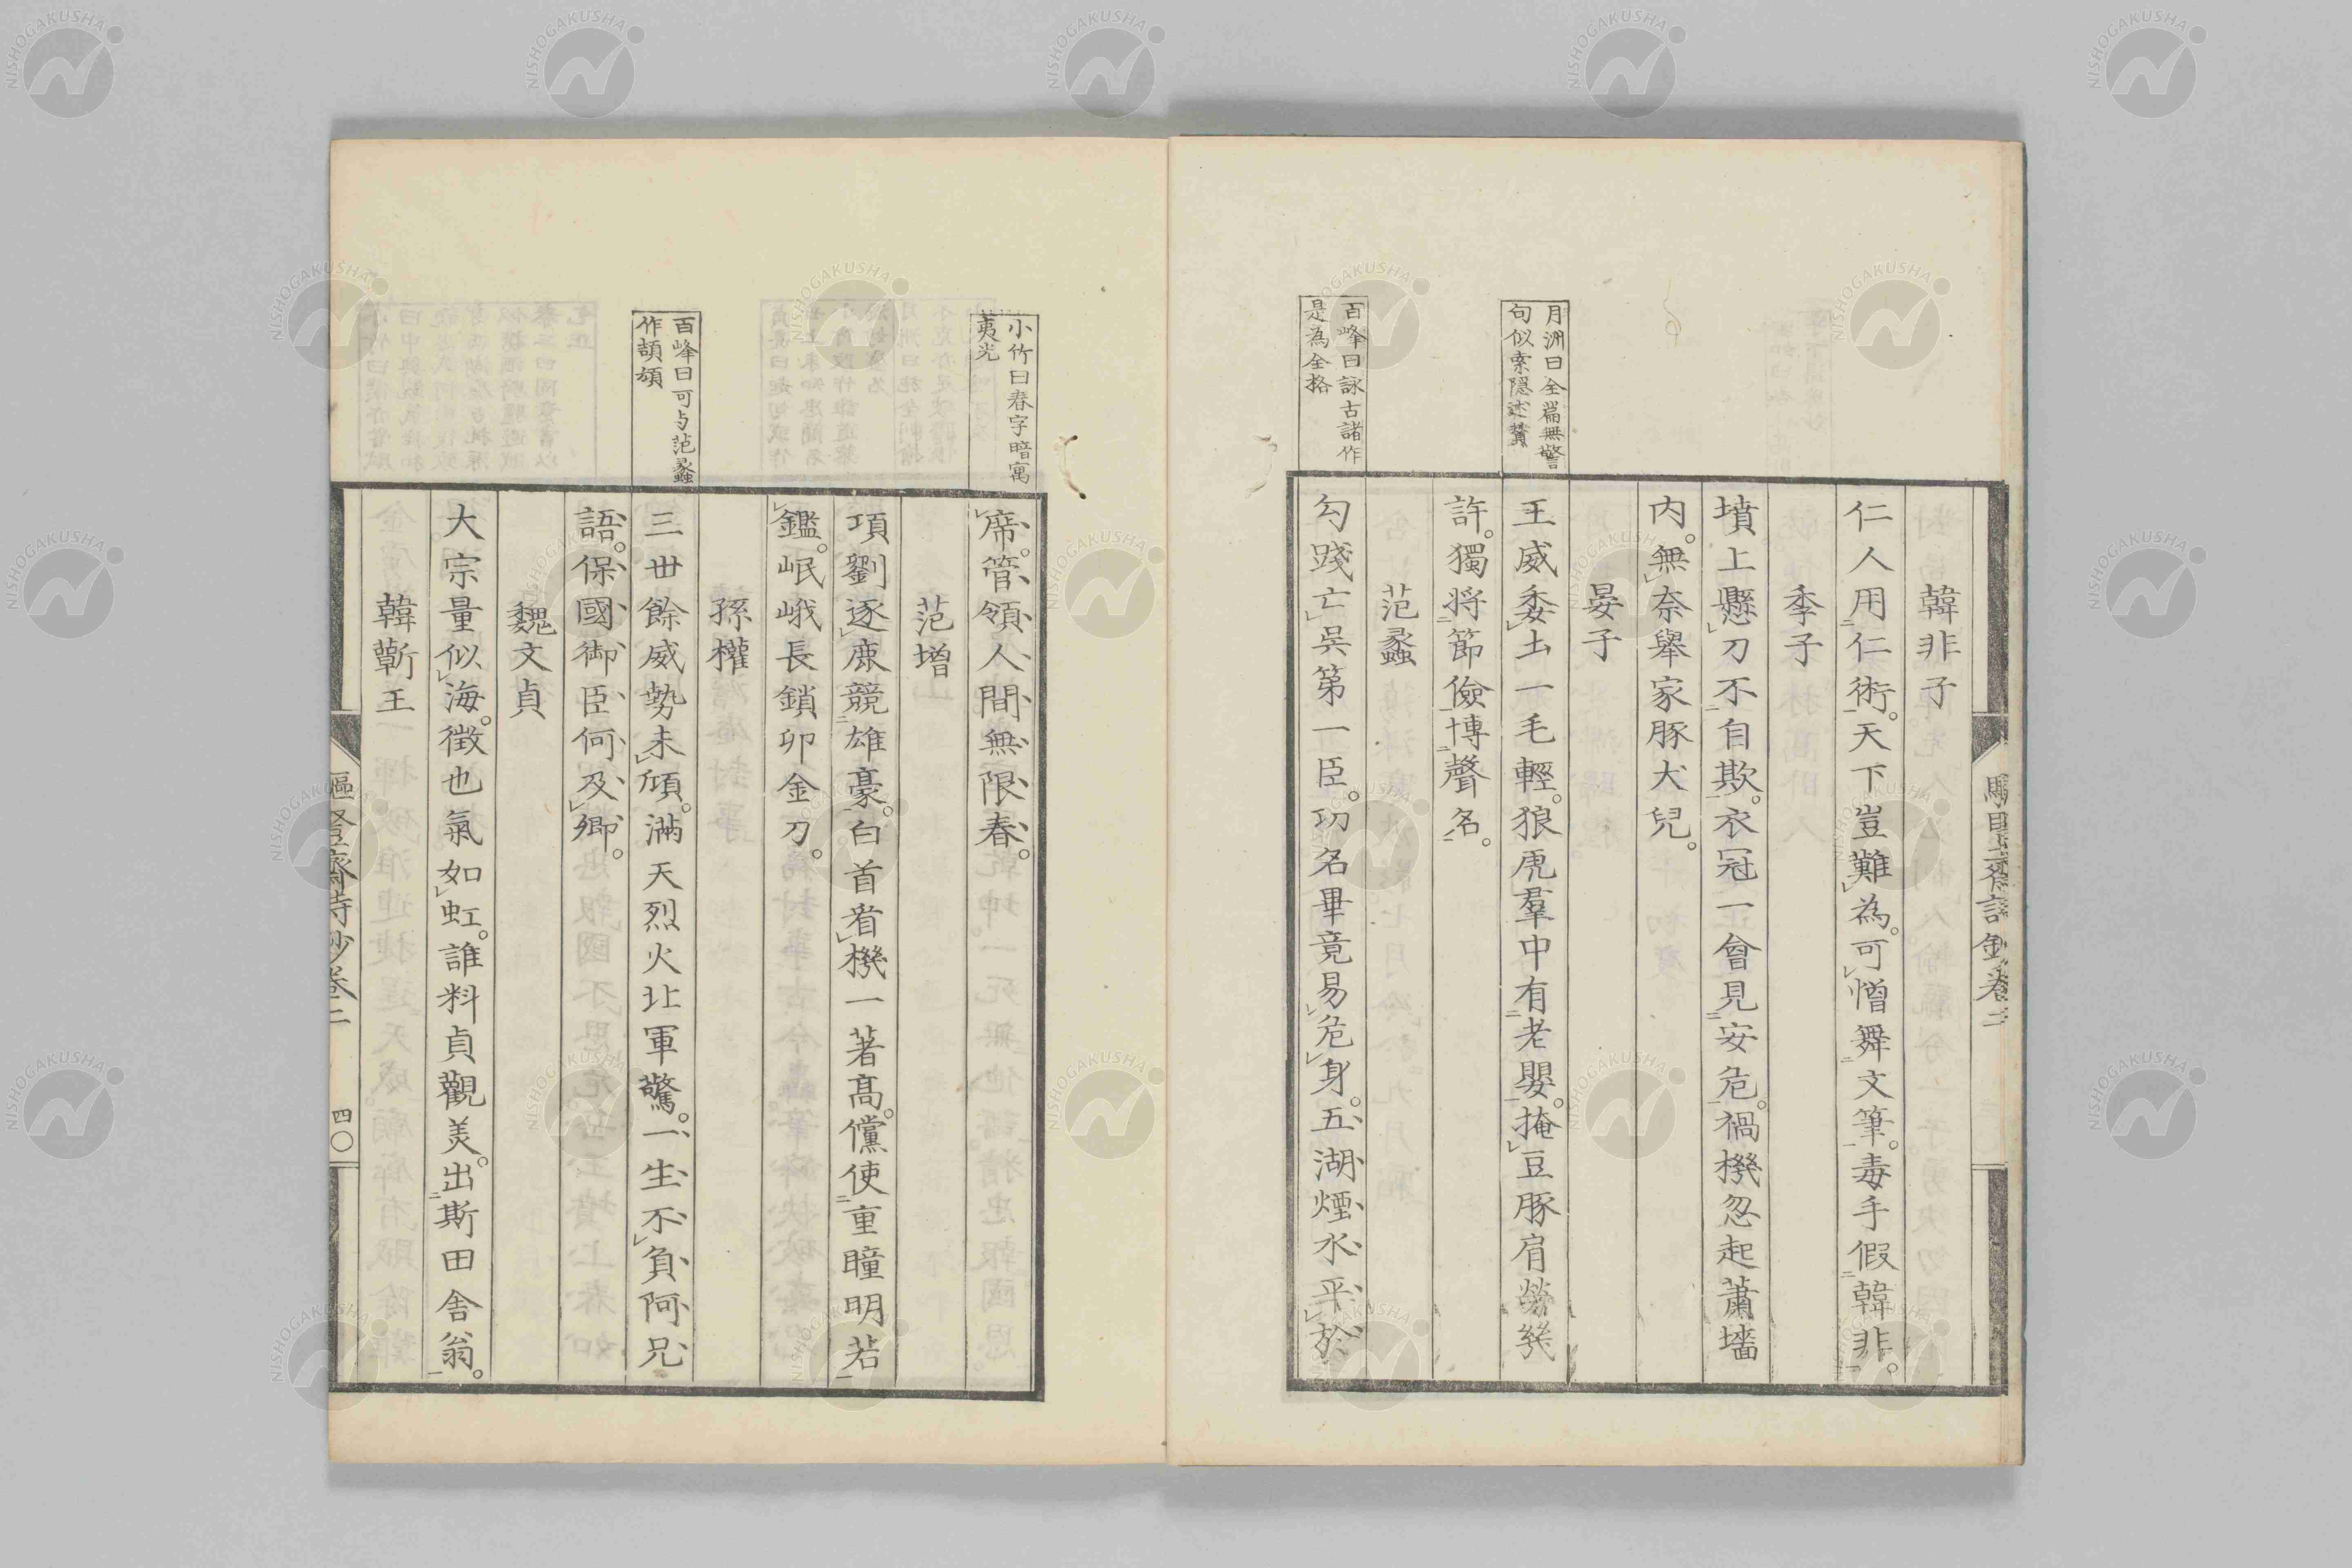 韓非子
仁人用仁術。天下豈難為。可憎舞文筆。毒手假韓非。
季子
墳上懸刀不自欺。衣冠一會見安危。禍機忽起蕭墻
内。無奈舉家豚犬兒。
晏子
王威委土一毛輕。狼虎羣中有老嬰。掩豆豚肩勞幾
許。獨将節儉博聲名。
范蠡
勾踐亡吳第一臣。功名畢竟易危身。五湖煙水平於
月洲曰全篇無警
句似索隱述贊
百峰曰詠古諸作
是為全格
席。管領人間無限春。
范增
項劉逐鹿競雄豪。白首看機一著高。儻使重瞳明若
鑑。岷峨長鎖卯金刀。
孫權
三世餘威勢未傾。滿天烈火北軍驚。一生不負阿兄
語。保國御臣何及卿。
魏文貞
大宗量似海。徵也氣如虹。誰料貞觀美。出斯田舍翁。
韓蘄王
小竹曰春字暗寓
夷光
百峰曰可与范蠡
作頡頏
詩鈔卷二
登齋詩鈔卷二
四〇
NISHOGAKUSHA